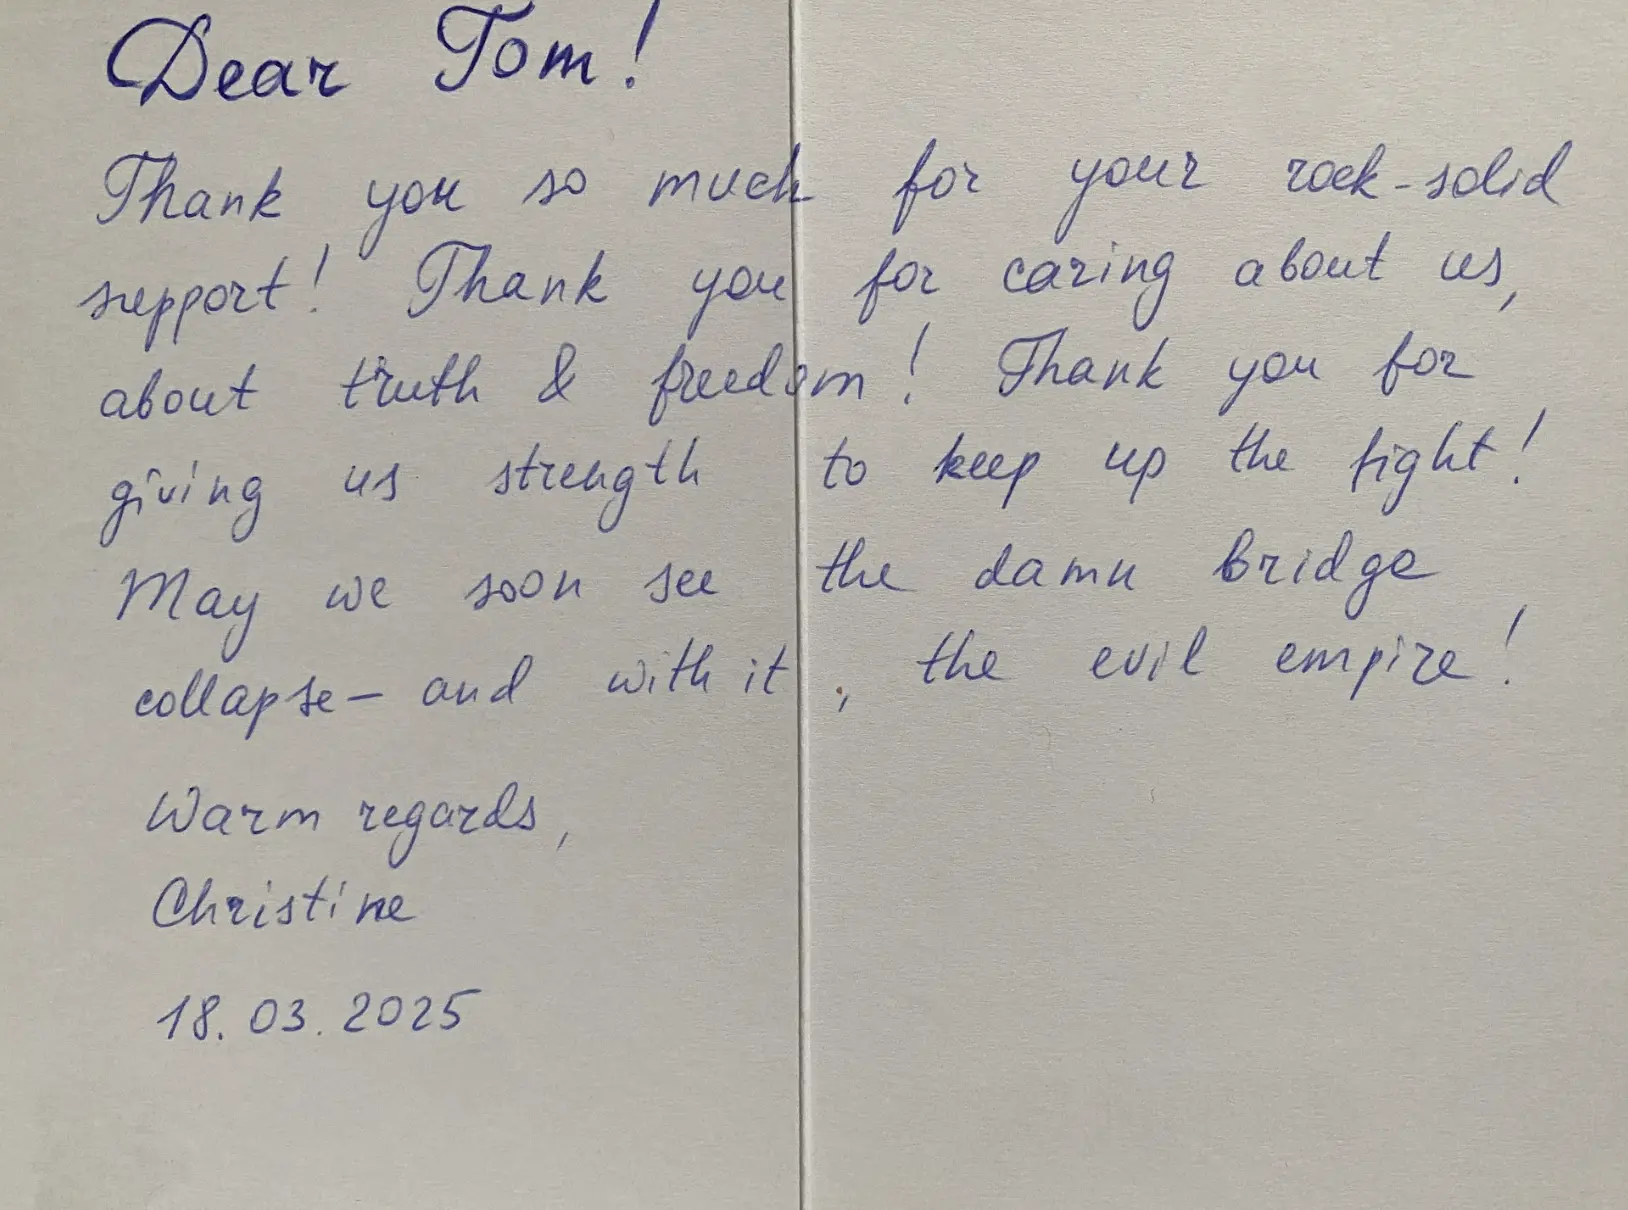 Dear Tom!
Thank you so much for your rock-solid
support! Thank you for caring about us,
about truth & freedom! Thank you for
giving us strength to keep up the fight!
May we soon see the damn bridge
collapse – and with it, the evil empire!
Warm regards,
Christine
18.03.2025